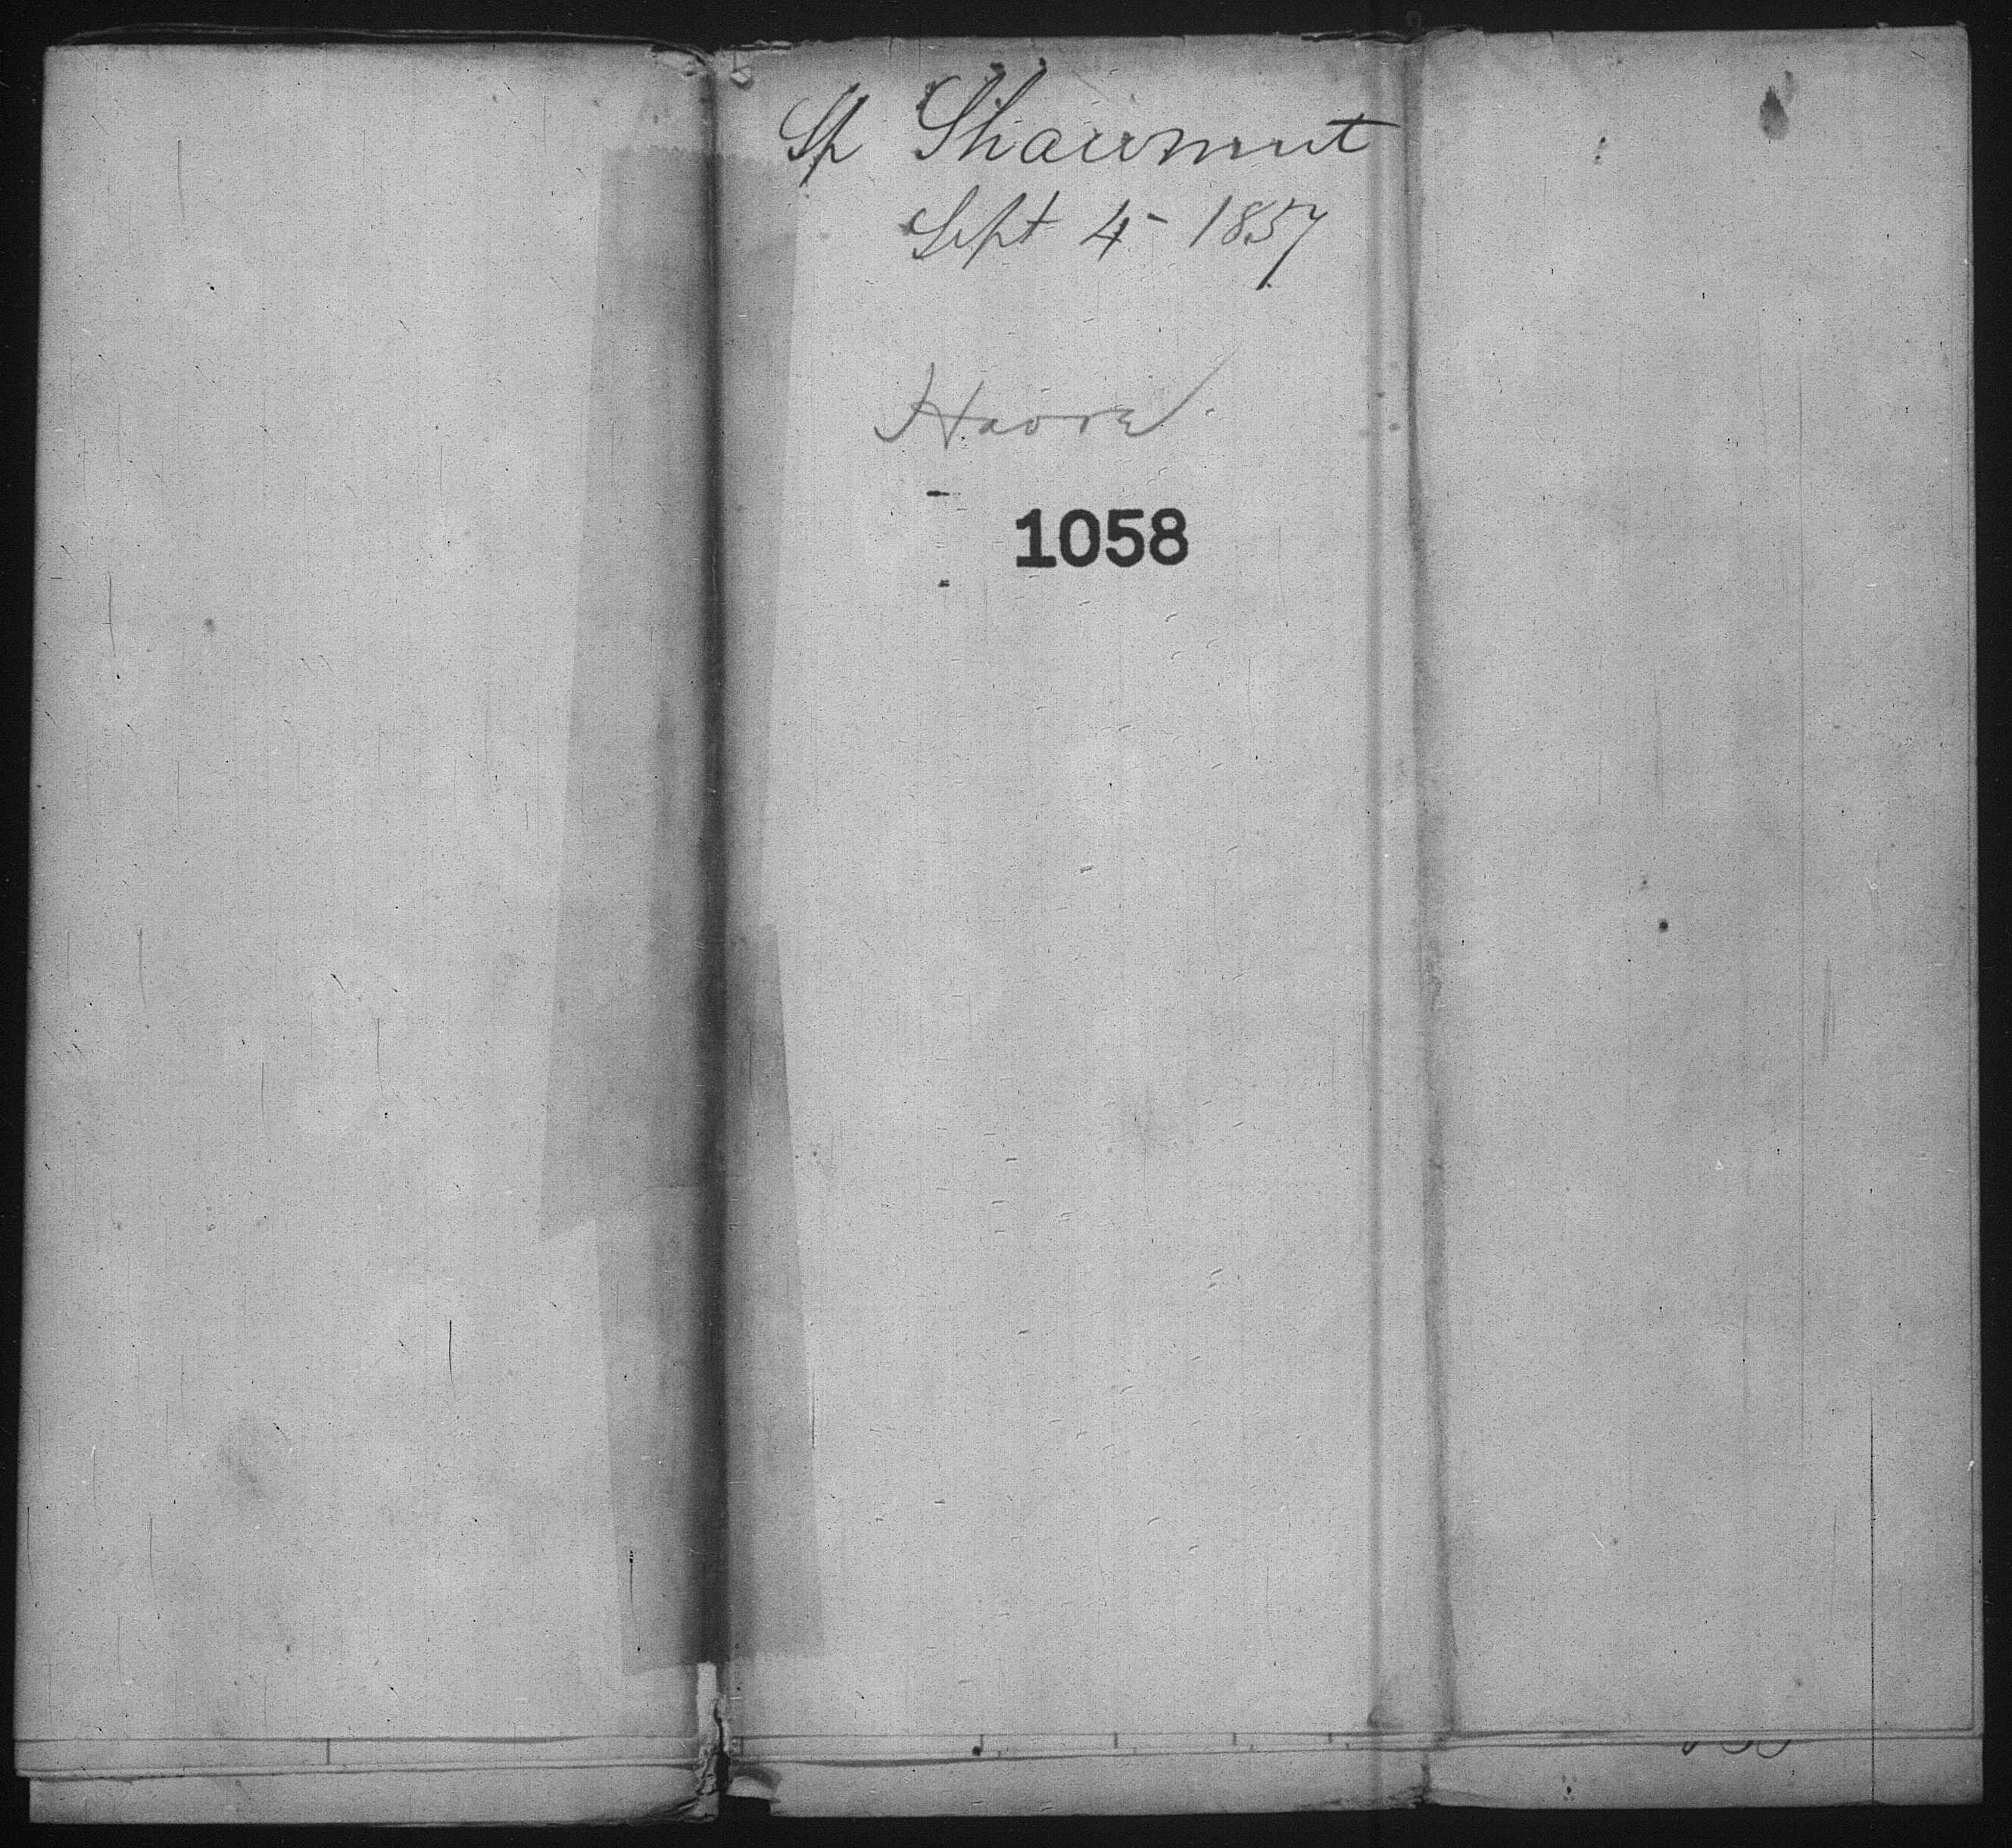 Sh Shawmut
Sept 4 - 1857
Havre
1058